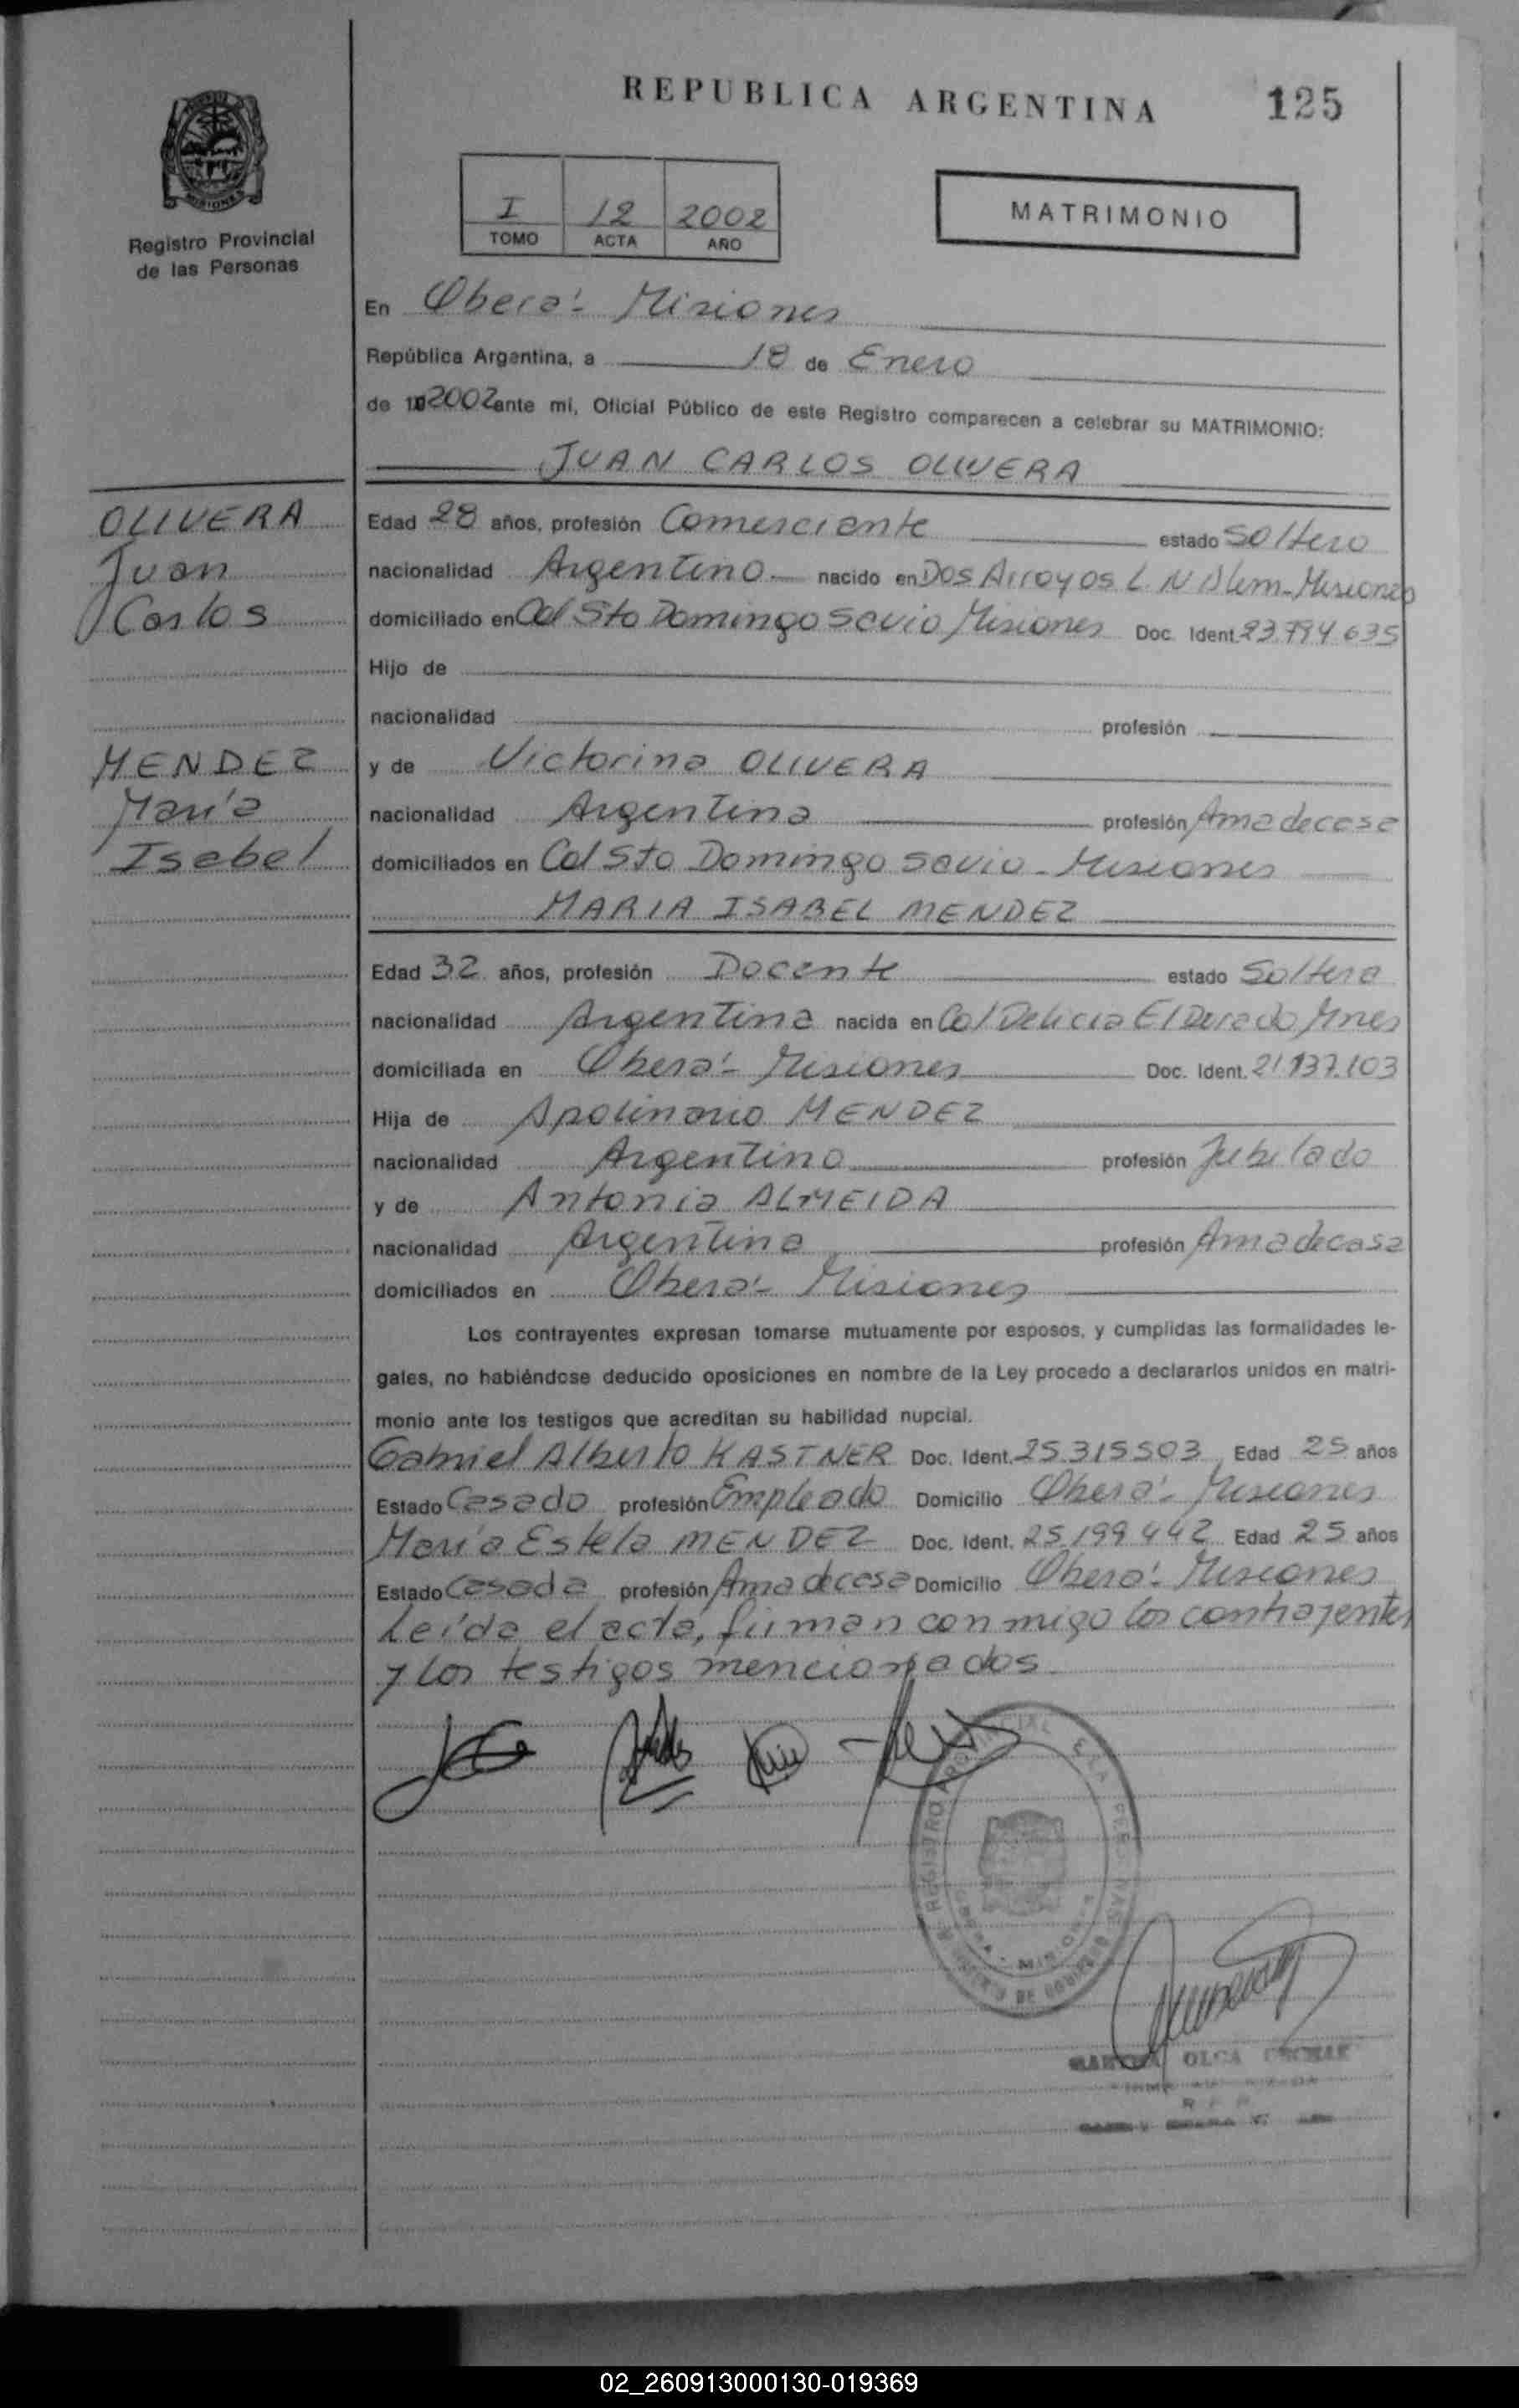 REPUBLICA ARGENTINA
125
I 12 2002
TOMO ACTA AÑO
MATRIMONIO
MISIONES
Registro Provincial
de las Personas
En Oberá - Misiones
República Argentina, a 18 de Enero
de 2002 ante mi, Oficial Público de este Registro comparecen a celebrar su MATRIMONIO:
JUAN CARLOS OLIVERA
OLIVERA
Juan
Carlos
Edad 28 años, profesión Comerciante estado Soltero
nacionalidad Argentino nacido en Dos Arroyos L. N Alem - Misiones
domiciliado en Col Sto Domingo Savio Misiones Doc. Ident. 23.794.635
Hijo de
nacionalidad profesión
MENDEZ
María
Isabel
y de Victorina OLIVERA
nacionalidad Argentina profesión Ama de casa
domiciliados en Col Sto Domingo Savio - Misiones
MARIA ISABEL MENDEZ
Edad 32 años, profesión Docente estado Soltera
nacionalidad Argentina nacida en Col Delicia El Dorado Mnes
domiciliada en Oberá - Misiones Doc. Ident. 21.137.103
Hija de Apolinario MENDEZ
nacionalidad Argentino profesión Jubilado
y de Antonia ALMEIDA
nacionalidad Argentina profesión Ama de casa
domiciliados en Oberá - Misiones
Los contrayentes expresan tomarse mutuamente por esposos, y cumplidas las formalidades le-
gales, no habiéndose deducido oposiciones en nombre de la Ley procedo a declararlos unidos en matri-
monio ante los testigos que acreditan su habilidad nupcial.
Gabriel Alberto KASTNER Doc. Ident. 25.315503 Edad 25 años
Estado Casado profesión Empleado Domicilio Oberá - Misiones
María Estela MENDEZ Doc. Ident. 25199442 Edad 25 años
Estado Casada profesión Ama de casa Domicilio Oberá - Misiones
Leída el acta, firman conmigo los contrayentes
y los testigos mencionados
REGISTRO PROVINCIAL
OLGA
02_260913000130-019369